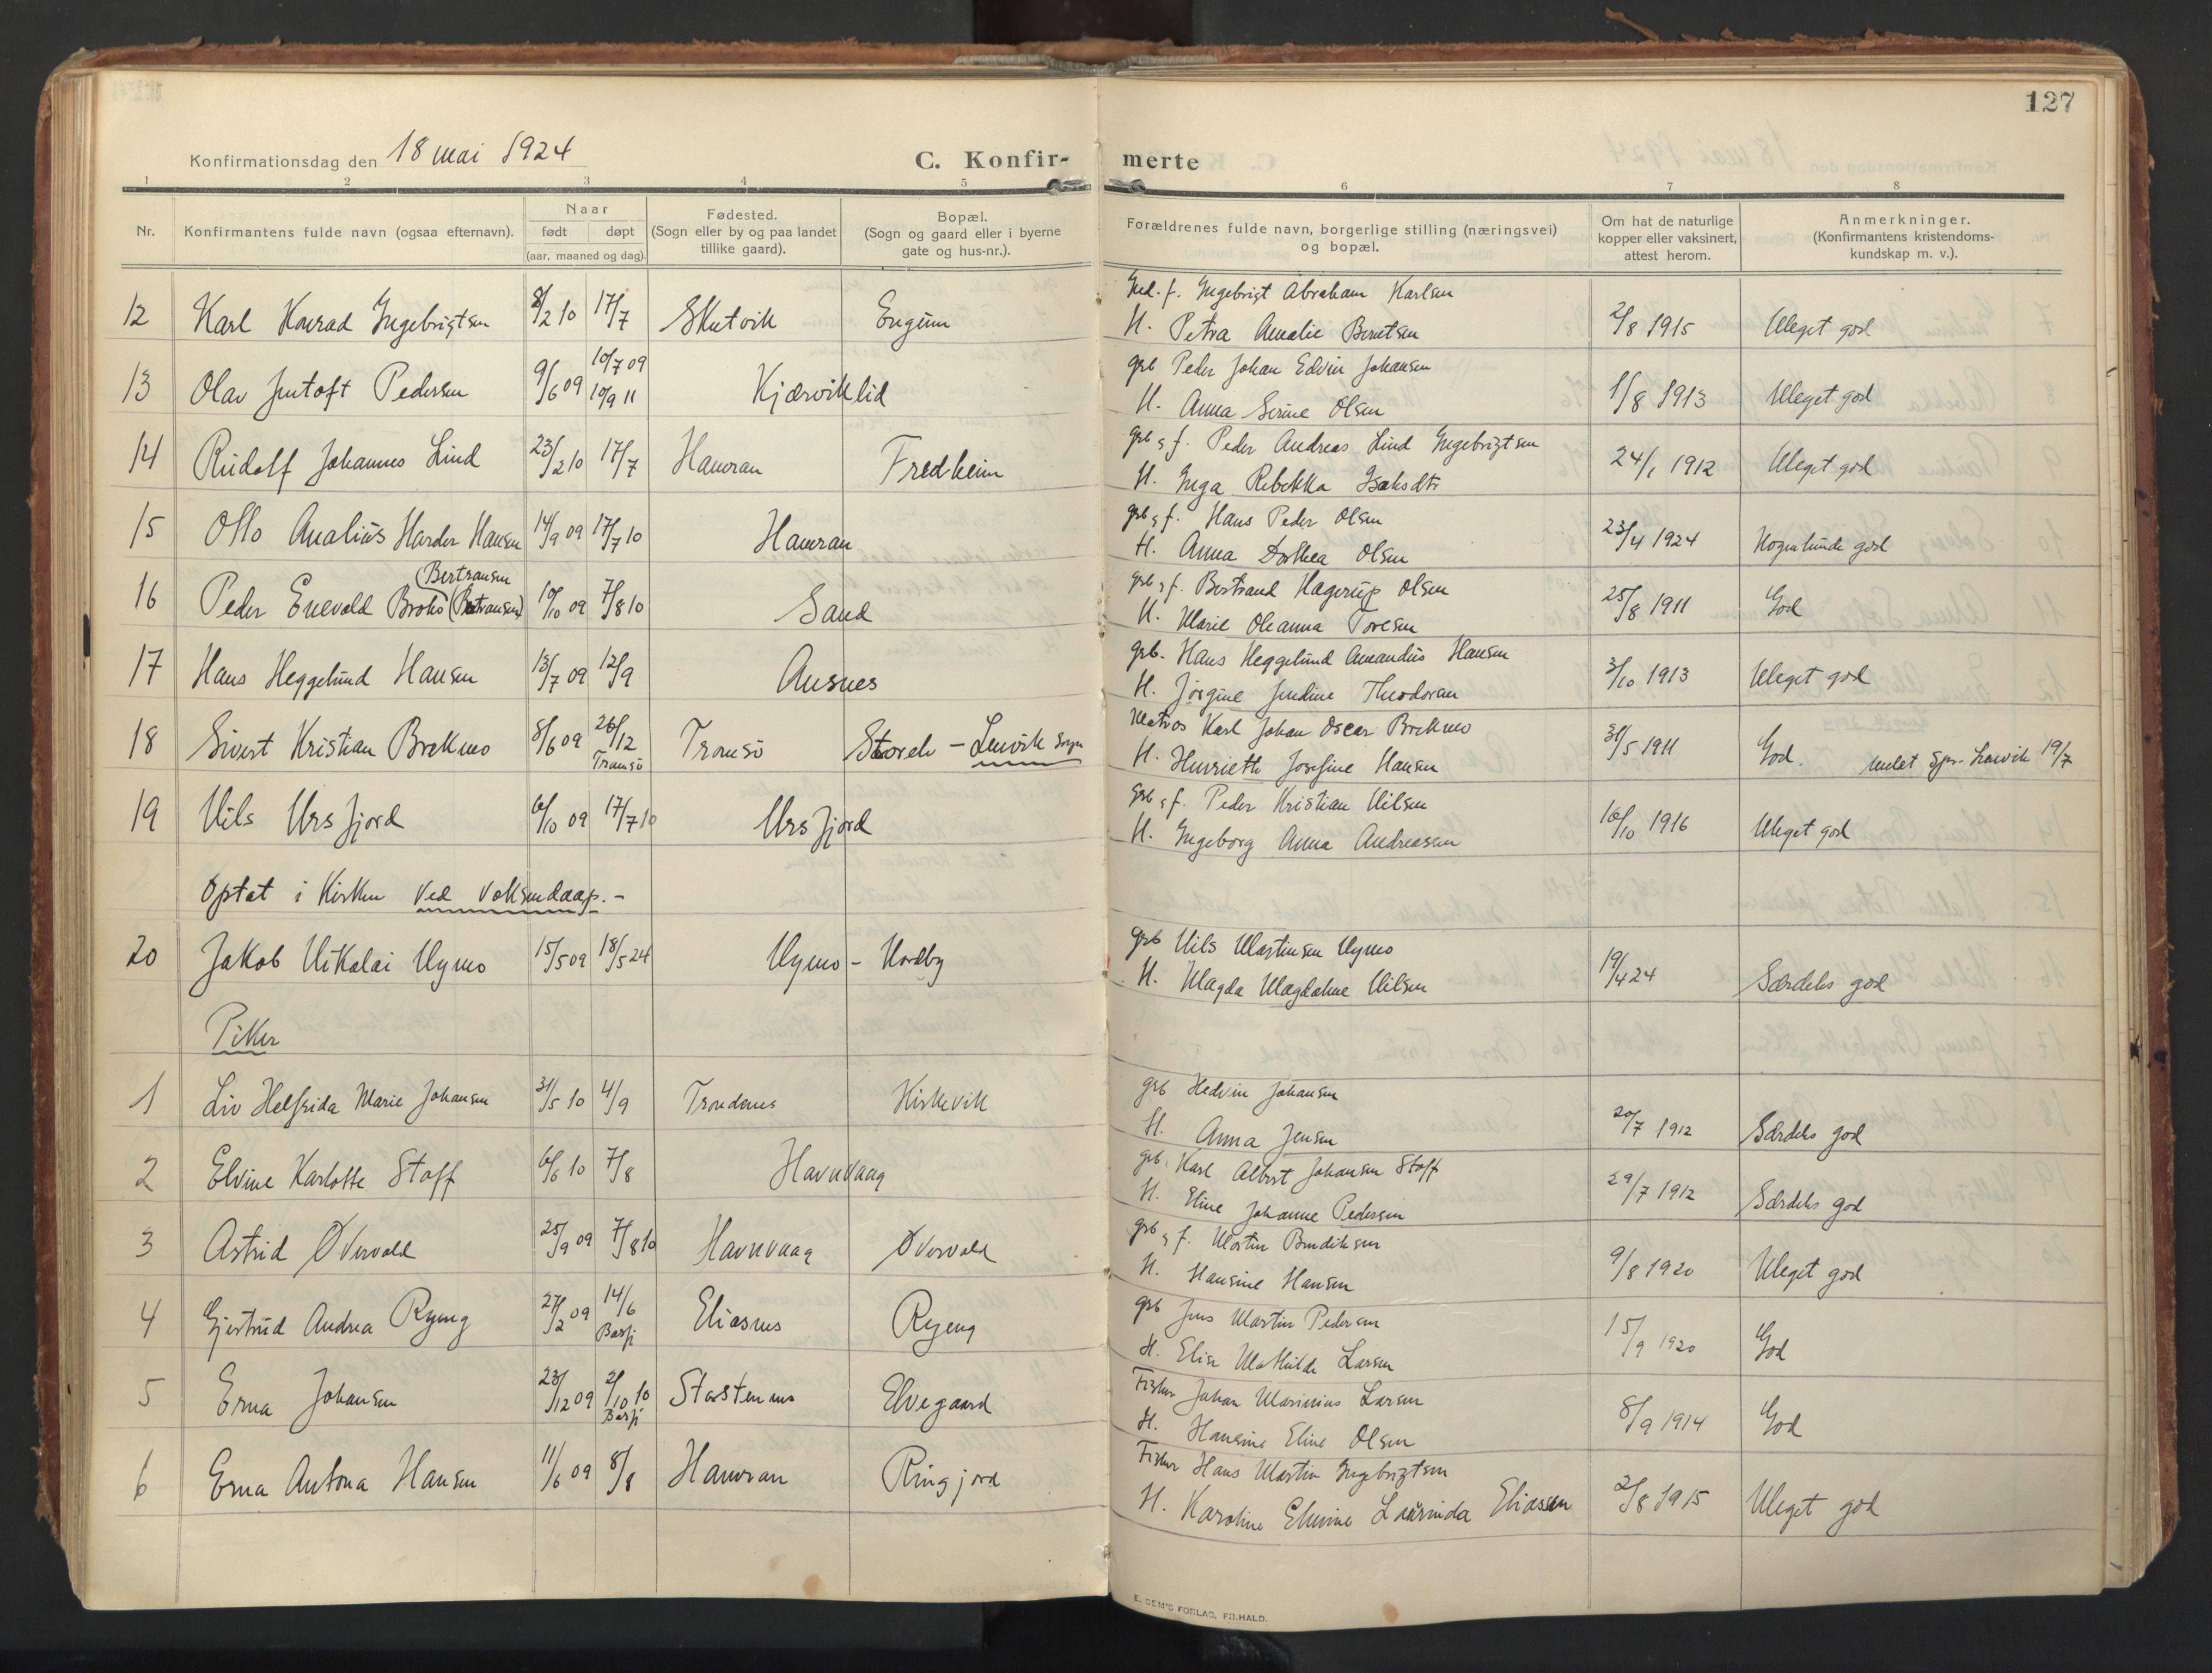 127
Konfirmationsdag den 18 mai 1924
C. Konfir- merte
1 2 3 4 5 6 7 8
Nr.
Konfirmantens fulde navn (ogsaa efternavn).
Naar
født døpt
(aar, maaned og dag).
Fødested.
(Sogn eller by og paa landet
tillike gaard).
Bopæl.
(Sogn og gaard eller i byerne
gate og hus-nr.).
Forældrenes fulde navn, borgerlige stilling (næringsvei)
og bopæl.
Om hat de naturlige
kopper eller vaksinert,
attest herom.
Anmerkninger.
(Konfirmantens kristendoms-
kundskap m. v.).
Ingebrigt Abraham Karlsen
12 Karl Konrad Ingebrigtsen 8/2 10 17/7 Skutvik Engum H. Petra Amalie Berntsen 2/8 1915 Meget god
10/7 09 grb Peder Johan Edvin Johansen
13 Olav Jentoft Pedersen 9/6 09 10/9 11 Kjærviklid H. Anna Serine Olsen 1/8 1913 Meget god
grb & f. Peder Andreas Lind Ingebrigtsen
14 Rudolf Johannes Lind 23/2 10 17/7 Hamran Fredheim H. Inga Rebekka Isaksdtr 24/1 1912 Meget god
grb & f. Hans Peder Olsen
15 Otto Analius Harder Hansen 14/9 09 17/7 10 Hamran H. Anna Dorthea Olsen 23/4 1924 Nogenlunde god
(Bertransen grb & f. Bertrand Hagerup Olsen
16 Peder Enevold Broks (Bertransen) 10/10 09 7/8 10 Sand H. Marie Oleanna Toresen 25/8 1911 God
grb. Hans Heggelund Amandus Hansen
17 Hans Heggelund Hansen 13/7 09 12/9 Ansnes H. Jørgine Jendine Theodorsen 3/10 1913 Meget god
Matros Karl Johan Oscar Brekmo
18 Sivert Kristian Brekmo 8/6 09 26/12 Tromsö Tromsö Storelv - Lenvik sogn H. Henriette Josefine Hansen 31/5 1911 God. meldt Spr. Lenvik 19/7
grb & f. Peder Kristian Nilsen
19 Nils Ursfjord 6/10 09 17/7 10 Ursfjord H. Ingeborg Anna Andreassen 16/10 1916 Meget god
Optat i Kirken ved voksendaap. -
grb Nils Martinsen Nymo
20 Jakob Nikolai Nymo 15/5 09 18/5 24 Nymo - Nordby H. Magda Magdalene Nilsen 19/4 24 Særdeles god
Piker
grb Hedvin Johansen
1 Liv Helfrida Marie Johansen 31/5 10 4/9 Trondenes Kirkevik H. Anna Jensen 20/7 1912 Særdeles god
grb. Karl Albert Johansen Stoff
2 Elvine Karlotte Stoff 6/6 10 7/8 Havnvaag H. Eline Johanne Pedersen 29/7 1912 Særdeles god
grb & f. Martin Bendiksen
3 Astrid Øvervold 25/9 09 7/8 10 Havnvaag Øvervold H. Hansine Hansen 9/8 1920 Meget god
grb Jens Martin Pedersen
4 Gjertrud Andrea Ryeng 27/2 09 14/6 Basfj Eliasnes Ryeng H. Elise Mathilde Larsen 15/9 1920 God
Fisker Johan Marinius Larsen
5 Erna Johansen 23/12 09 2/10 10 Basfj Elvegaard H. Hansine Eline Olsen 8/9 1914 God
Fisker Hans Martin Ingebrigtsen
6 Erna Antona Hansen 11/6 09 8/8 Hamran Ringjord H. Karoline Elvine Laurinda Eliassen 2/8 1915 Meget god
E. SEM'S FORLAG. FR.HALD.